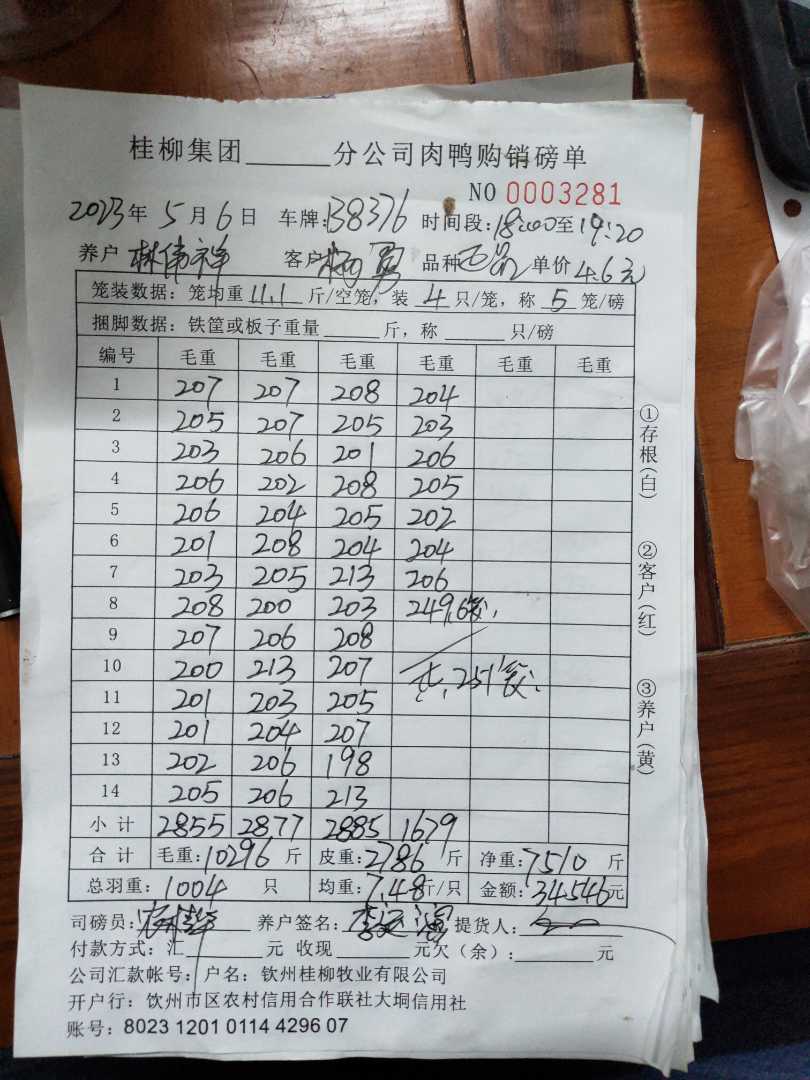 桂柳集团______分公司肉鸭购销磅单
NO 0003281
2023年 5月 6日 车牌:B8376 时间段:18:00至19:20
养户 林伟祥 客户 杨勇 品种 单价 4.6元
笼装数据: 笼均重 11.1 斤/空笼, 装 4 只/笼, 称 5 笼/磅
捆脚数据: 铁筐或板子重量______斤, 称______只/磅
编号 毛重 毛重 毛重 毛重 毛重 毛重
1 207 207 208 204
2 205 207 205 203
3 203 206 201 206
4 206 202 208 205
5 206 204 205 202
6 201 208 204 204
7 203 205 213 206
8 208 200 203 249,6
9 207 206 208
10 200 213 207 共,251
11 201 203 205
12 201 204 207
13 202 206 198
14 205 206 213
小计 2855 2877 2885 1679
合计 毛重:10296斤 皮重:2786斤 净重:7510斤
总羽重:1004只 均重:7.48斤/只 金额:34546元
司磅员: 养户签名: 提货人:
付款方式:汇______元 收现______元欠(余):______元
公司汇款帐号: 户名: 钦州桂柳牧业有限公司
开户行: 钦州市区农村信用合作联社大垌信用社
账号: 8023 1201 0114 4296 07
①存根(白)
②客户(红)
③养户(黄)